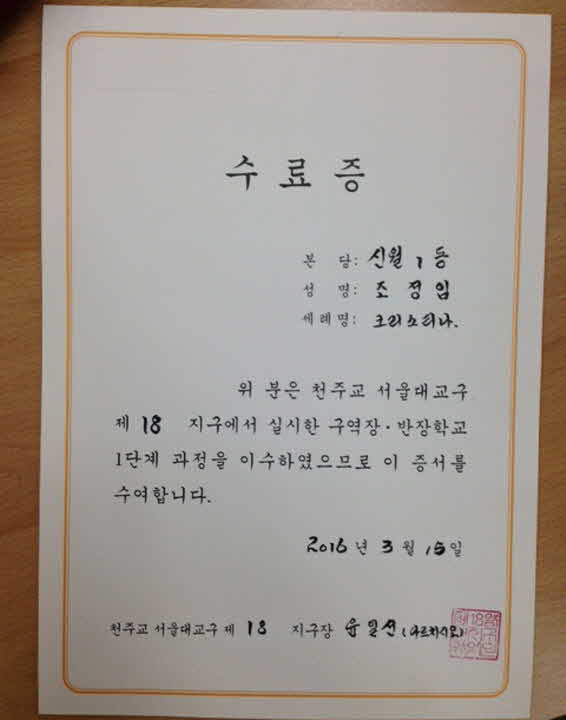 수료증
본 당: 신월 1 동
성 명: 조 정 임
세례명: 크리스티나.
위 분은 천주교 서울대교구
제 18 지구에서 실시한 구역장·반장학교
1단계 과정을 이수하였으므로 이 증서를
수여합니다.
2016 년 3 월 15 일
천주교 서울대교구 제 18 지구장 윤 일 선